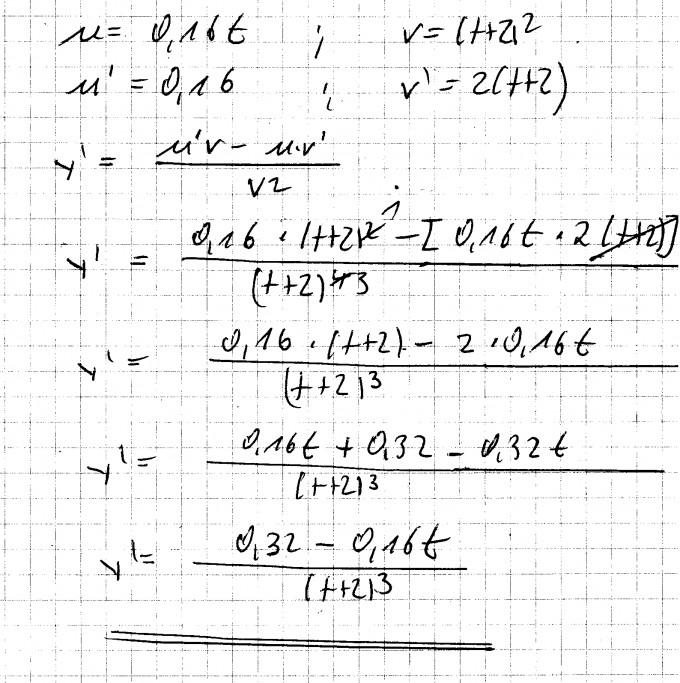 u = 0,16t ; v = (t+2)²
u' = 0,16 ; v' = 2(t+2)
y' = (u'v - u·v') / v2
y' = (0,16 · (t+2)² 1 - [0,16t · 2(t+2)]) / (t+2)⁴ 3
y' = (0,16 · (t+2) - 2 · 0,16t) / (t+2)³
y' = (0,16t + 0,32 - 0,32t) / (t+2)³
y' = (0,32 - 0,16t) / (t+2)³